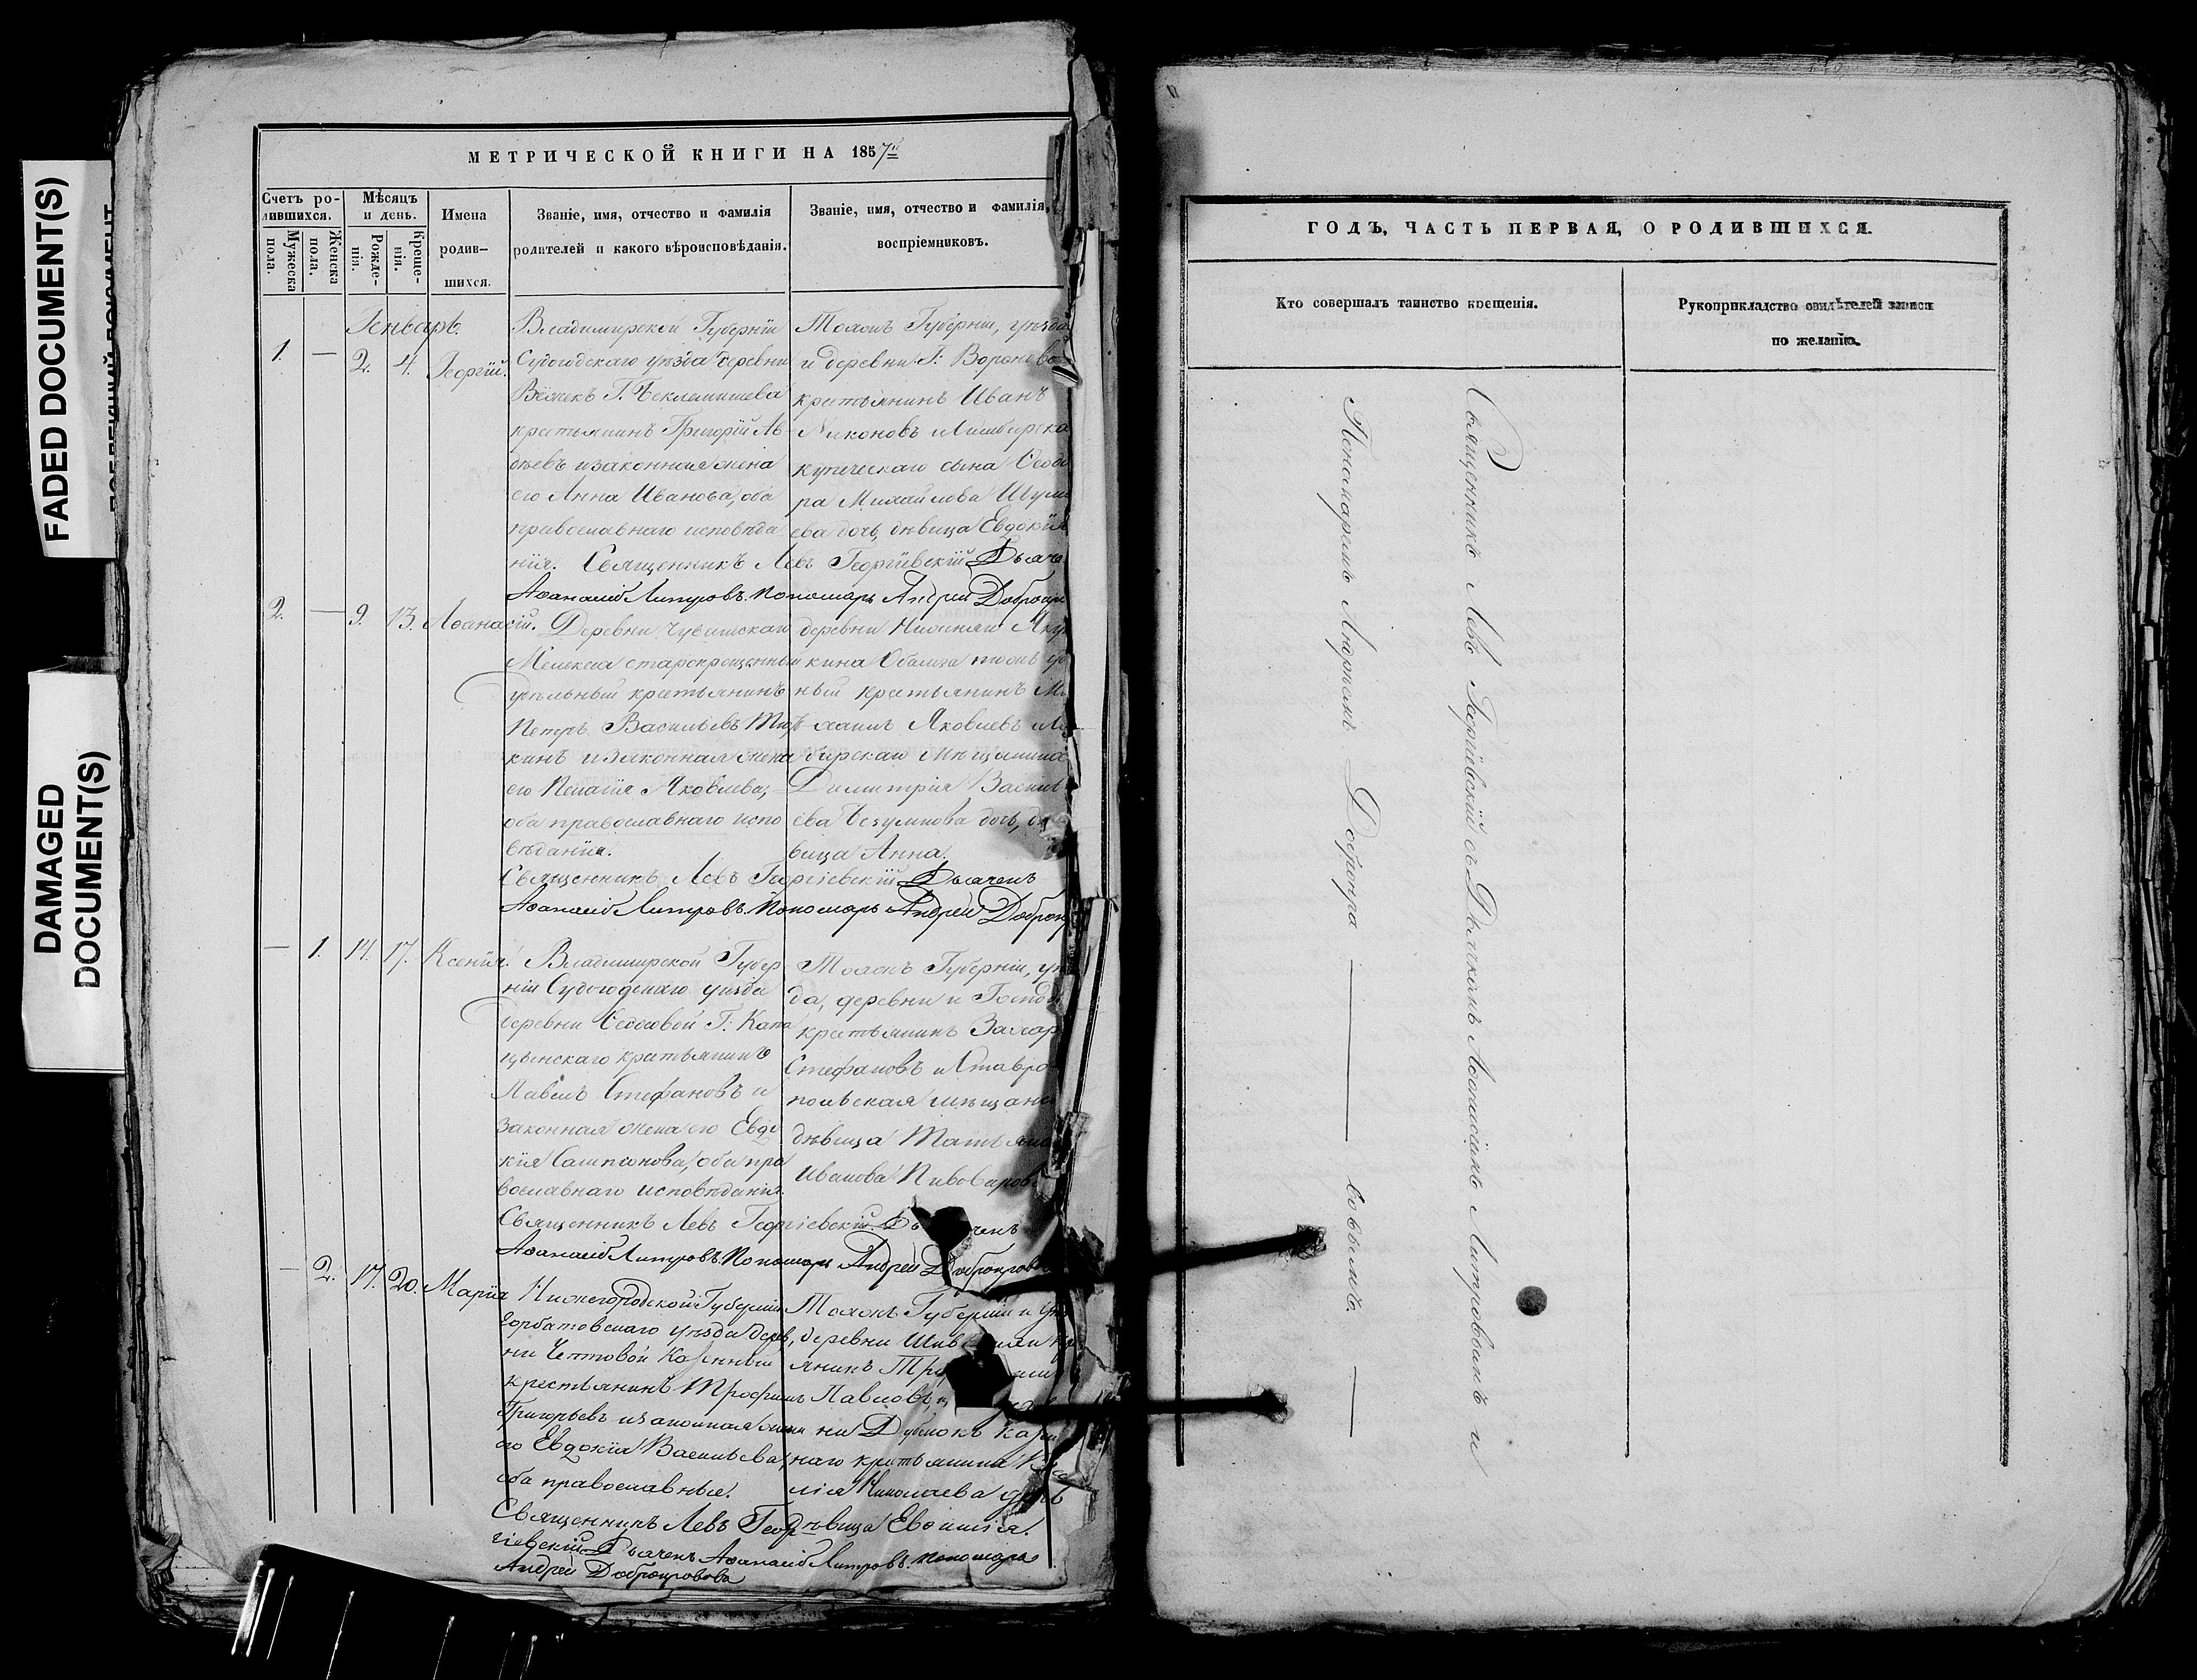 FADED DOCUMENT(S)
DAMAGED
DOCUMENT(S)
МЕТРИЧЕСКОЙ КНИГИ НА 1857й
Счетъ ро-
дившихся.
Мужеска пола.
Женска пола.
Мѣсяцъ
и день.
Рожде-
нія.
Креще-
нія.
Имена
родив-
шихся.
Званіе, имя, отчество и фамилія
родителей и какого вѣроисповѣданія.
Званіе, имя, отчество и фамилія,
воспріемниковъ.
Генварь.
1. — 2. 4. Георгій.
Владимирской Губерніи
Судогодскаго уѣзда деревни
Г. Беклемишева
крестьянинъ Григорій Ав-
дѣевъ и законная жена
его Анна Иванова, оба
православнаго исповѣда
нія. Священникъ Левъ Георгіевскій Дьяче
Аѳанасій Литровъ. Пономарь Андрей Добронр
Тояжъ Губерніи, уѣзда
и деревни Г: Воронова
крестьянинъ Иванъ
Никоновъ и Симбирска
купеческаго сына Ѳеодо
ра Михайлова Шуми
ева дочь, дѣвица Евдокія
2. — 9. 13. Аѳанасій.
Деревни Чувашскаго
Мелекеса старокрещенный
удѣльный крестьянинъ
Петръ Васильевъ
кинъ и законная жена
его Пелагія Яковлева,
оба православнаго испо
вѣданія.
Священникъ Левъ Георгіевскій Дьячекъ
Аѳанасій Литровъ. Пономарь Андрей Доброн
деревни Нижняго Яку
кина тожъ уд
ный крестьянинъ Ми
хаилъ Яковлевъ и
бирскаго мѣщанина
Димитрія Василь
ева Безумнова дочь, дѣ
вица Анна.
— 1. 14. 17. Ксенія.
Владимирской Губер
ніи Судогодскаго уѣзда
деревни Ѳедосовой Г: Кап
цынскаго крестьянинъ
Павелъ Стефановъ и
законная жена его Евдо
кія Сампсонова, оба пра
вославнаго исповѣданія.
Священникъ Левъ Георгіевскій. Дьячекъ
Аѳанасій Литровъ. Пономарь Андрей Добронрово
Тояжъ Губерніи, уѣз
да, деревни и Господ
крестьянинъ Захар
Стефановъ и Ставро
польская мѣщанс
дѣвица Татьяна
Иванова Пивоваров
— 2. 17. 20. Марія
Нижегородской Губерніи
Горбатовскаго уѣзда дерев
ни Чептовой Казенный
крестьянинъ Трофимъ
Григорьевъ и законная жена
его Евдокія Васильева,
оба православные.
Священникъ Левъ Геор
гіевскій Дьячекъ Аѳанасій Литровъ. Пономарь
Андрей Доброкровова
Тояжъ Губерніи и уѣ
деревни
янинъ
Павловъ,
ни Дубнокъ Казен
наго крестьянина
лія Николаева дочь
дѣвица Евѳимія.
ГОДЪ, ЧАСТЬ ПЕРВАЯ, О РОДИВШИХСЯ.
Кто совершалъ таинство крещенія.
Рукоприкладство свидѣтелей записи
по желанію.
Священникъ Левъ Георгіевскій съ Дьячкомъ Аѳанасіемъ Литровымъ и
Пономаремъ Андреемъ Добронра — вовымъ. —